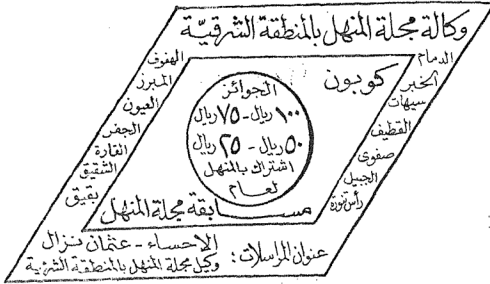 وكالة مجلة المنهل بالمنطقة الشرقيّة
الدمام
الخبر
سيهات
القطيف
صفوى
الجبيل
رأس تنورة
الهفوف
المبرز
العيون
الجفر
القارة
الشقيق
بقيق
كوبون
الجوائز
١٠٠ ريال - ٧٥ ريال
٥٠ ريال - ٢٥ ريال
اشتراك بالمنهل
لعام
مسابقة مجلة المنهل
عنوان المراسلات : الاحساء - عثمان نزال
وكيل مجلة المنهل بالمنطقة الشرقية